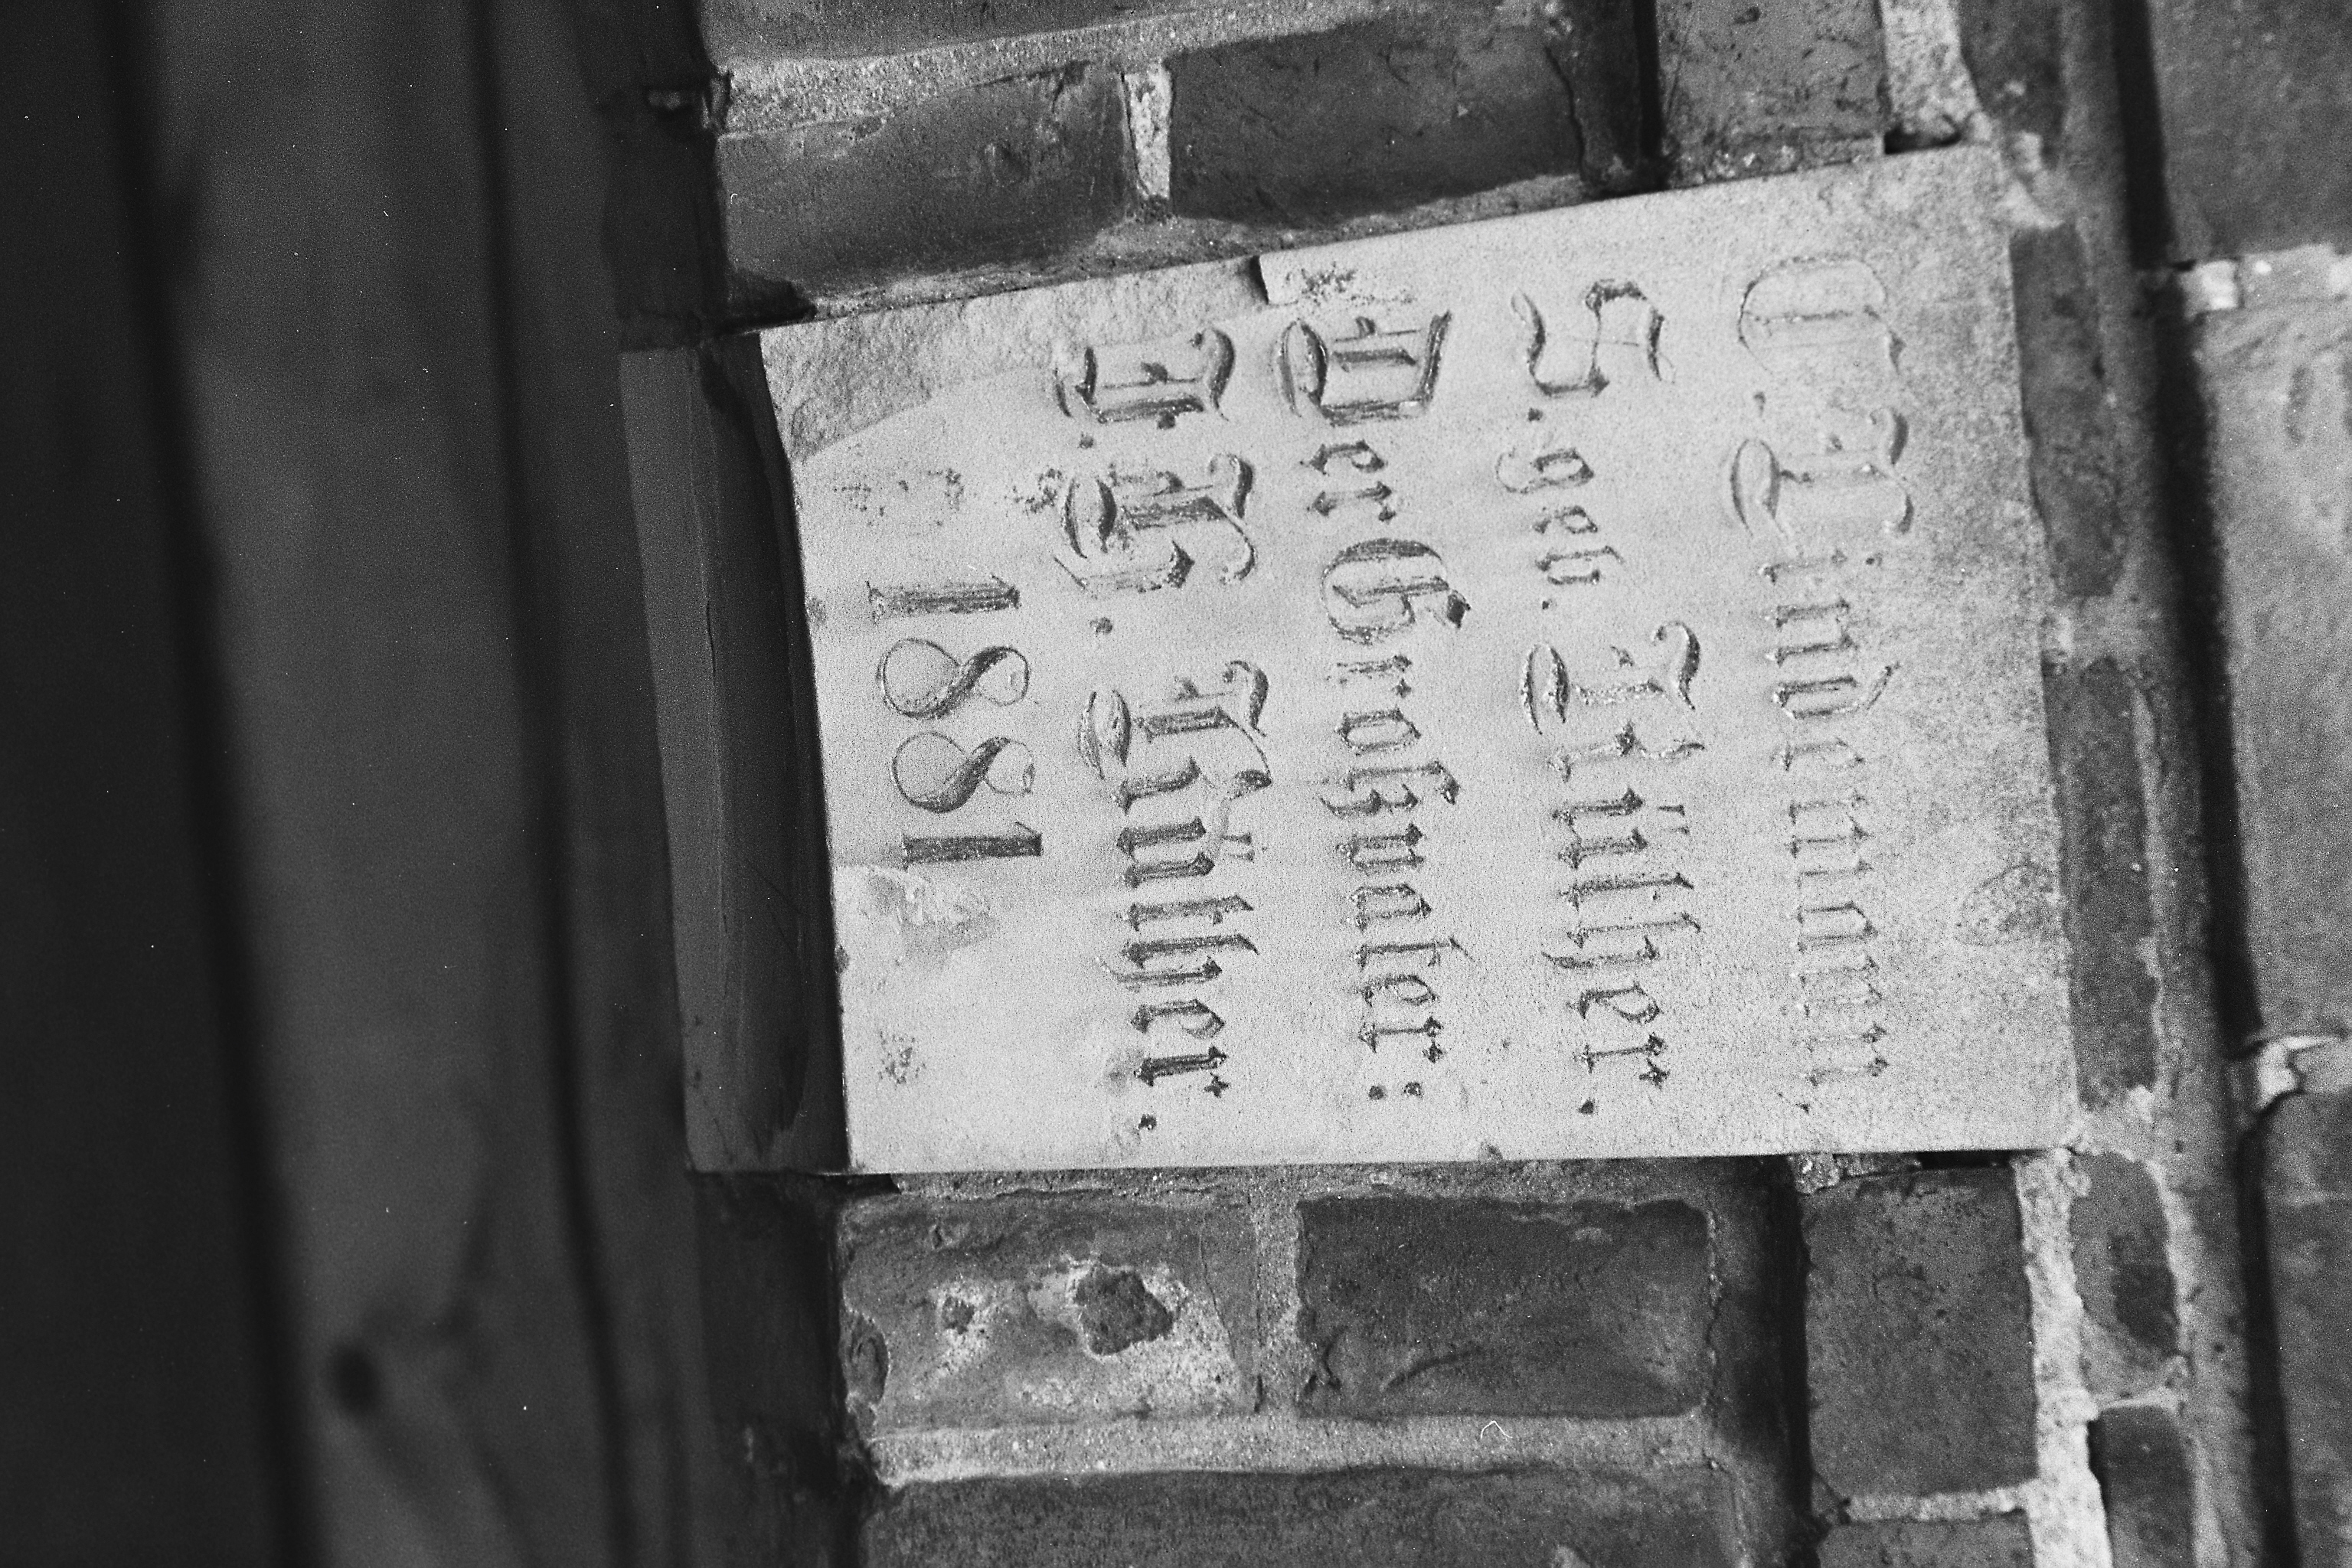 Klingemann
S. geb. Klüther.
Der Großvater:
Klüther.
1881